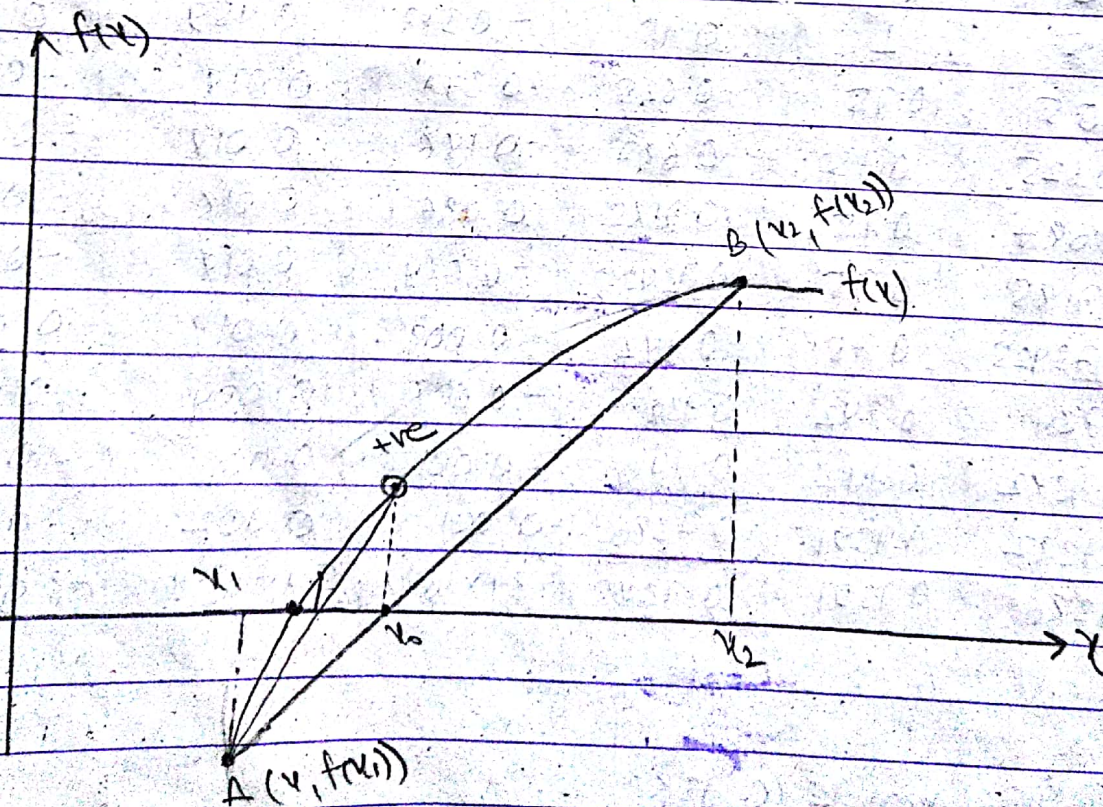 f(x)
B (x2, f(x2))
f(x)
+ve
x1
x0
x2
x
A (x, f(x1))